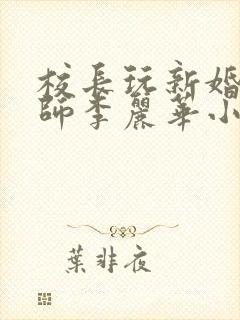 校長玩新婚
師李麗華小
葉非夜